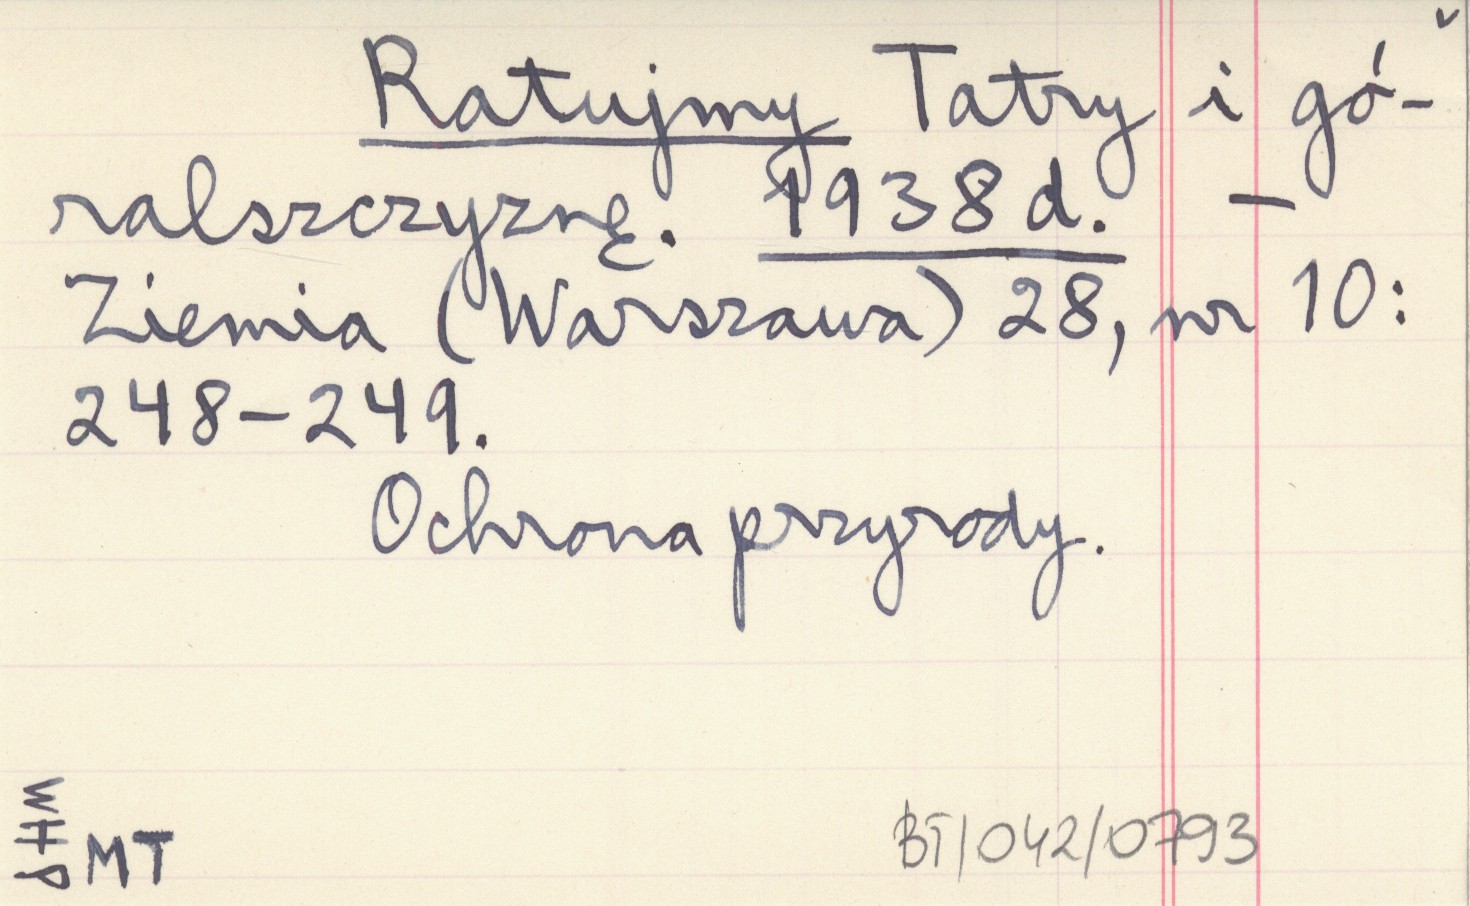 Ratujmy Tatry i gó-
ralszczyznę. 1938 d. –
Ziemia (Warszawa) 28, nr 10:
248–249.
Ochrona przyrody.
WHP
MT
BT/042/0793